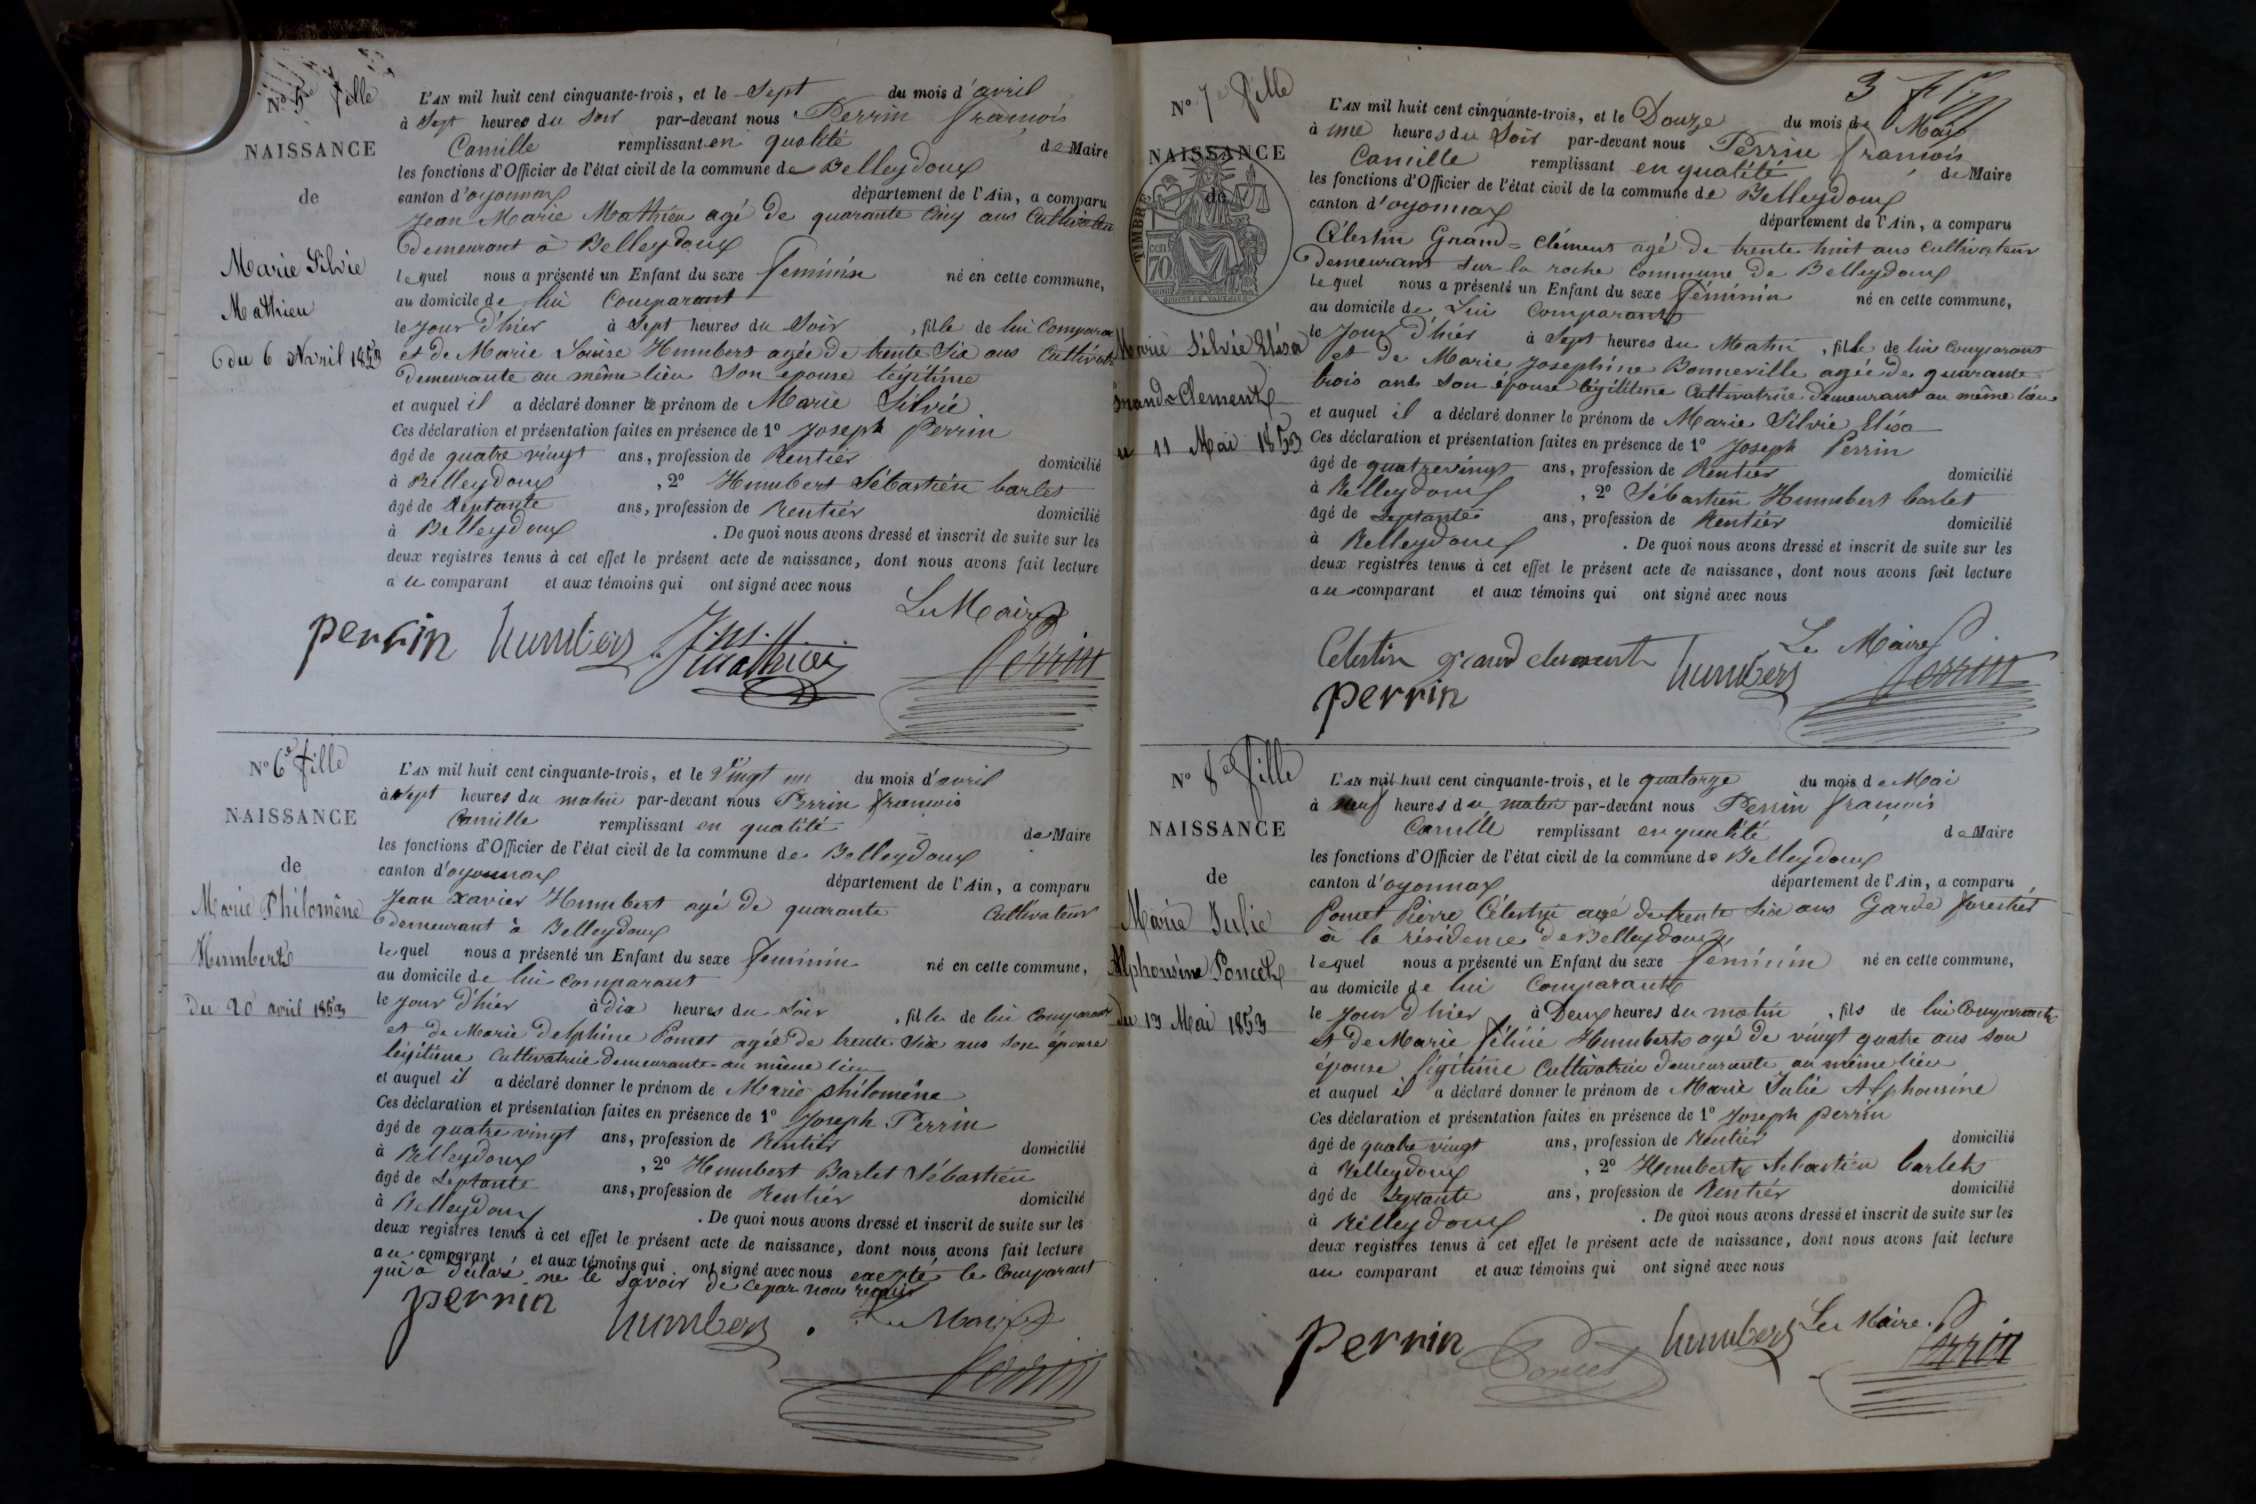 No 5e fille
NAISSANCE
de
Marie Silvie
Mathieu
du 6 Avril 1853
L'AN mil huit cent cinquante-trois, et le Sept du mois d'avril
à Sept heures du Soir par-devant nous Perrin françois
Camille remplissant en qualité de Maire
les fonctions d'Officier de l'état civil de la commune de Belleydoux
canton d'oyonnax département de l'Ain, a comparu
Jean Marie Mathieu agé de quarante Cinq ans Cultivateur
demeurant à Belleydoux
lequel nous a présenté un Enfant du sexe feminin né en cette commune,
au domicile de lui Comparant
le Jour d'hier à Sept heures du Soir, fille de lui Comparant
et de Marie Louise Humbert agée de trente Six ans Cultivatr
demeurante au même lieu Son epouse légitime
et auquel il a déclaré donner le prénom de Marie Silvie
Ces déclaration et présentation faites en présence de 1º Joseph Perrin
âgé de quatre vingt ans, profession de Rentier domicilié
à Belleydoux, 2º Humbert Sébastien barlet
âgé de Septante ans, profession de Rentier domicilié
à Belleydoux. De quoi nous avons dressé et inscrit de suite sur les
deux registres tenus à cet effet le présent acte de naissance, dont nous avons fait lecture
au comparant et aux témoins qui ont signé avec nous
Le Maire
perrin humbert J. M. Mathieu Perrin
No 6e fille
NAISSANCE
de
Marie Philomène
Humbert
du 20 avril 1853
L'AN mil huit cent cinquante-trois, et le Vingt un du mois d'avril
à Sept heures du matin par-devant nous Perrin françois
Camille remplissant en qualité de Maire
les fonctions d'Officier de l'état civil de la commune de Belleydoux
canton d'oyonnax département de l'Ain, a comparu
Jean Xavier Humbert agé de quarante Cultivateur
demeurant à Belleydoux
lequel nous a présenté un Enfant du sexe feminin né en cette commune,
au domicile de lui comparant
le jour d'hier à dix heures du Soir, fille de lui Comparant
et de Marie delphine Poncet agée de trente Six ans Son épouse
légitime Cultivatrice demeurante au même lieu
et auquel il a déclaré donner le prénom de Marie philomène
Ces déclaration et présentation faites en présence de 1º Joseph Perrin
âgé de quatre vingt ans, profession de Rentier domicilié
à Belleydoux, 2º Humbert Barlet Sébastien
âgé de Septante ans, profession de Rentier domicilié
à Belleydoux. De quoi nous avons dressé et inscrit de suite sur les
deux registres tenus à cet effet le présent acte de naissance, dont nous avons fait lecture
au comparant et aux témoins qui ont signé avec nous excepté le Comparant
qui a déclaré ne le Savoir de ce par nous requis
perrin humbert Le Maire
Perrin
3
No 7e fille
NAISSANCE
de
TIMBRE
70
Marie Silvie Elisa
Grand-Clement
du 11 Mai 1853
L'AN mil huit cent cinquante-trois, et le Douze du mois de Mai
à une heures du Soir par-devant nous Perrin françois
Camille remplissant en qualité de Maire
les fonctions d'Officier de l'état civil de la commune de Belleydoux
canton d'oyonnax département de l'Ain, a comparu
Célestin Grand-Clément agé de trente huit ans Cultivateur
demeurant sur la roche Commune de Belleydoux
lequel nous a présenté un Enfant du sexe féminin né en cette commune,
au domicile de Lui Comparant
le Jour d'hier à Sept heures du Matin, fille de lui Comparant
et de Marie Josephine Bonneville agée de quarante
trois ans Son épouse légitime Cultivatrice demeurant au même lieu
et auquel il a déclaré donner le prénom de Marie Silvie Elisa
Ces déclaration et présentation faites en présence de 1º Joseph Perrin
âgé de quatre vingt ans, profession de Rentier domicilié
à Belleydoux, 2º Sébastien Humbert barlet
âgé de Septante ans, profession de Rentier domicilié
à Belleydoux. De quoi nous avons dressé et inscrit de suite sur les
deux registres tenus à cet effet le présent acte de naissance, dont nous avons fait lecture
au comparant et aux témoins qui ont signé avec nous
Le Maire
Celestin grand clement humbert Perrin
perrin
No 8e fille
NAISSANCE
de
Marie Julie
Alphonsine Poncet
du 13 Mai 1853
L'AN mil huit cent cinquante-trois, et le quatorze du mois de Mai
à neuf heures du matin par-devant nous Perrin françois
Camille remplissant en qualité de Maire
les fonctions d'Officier de l'état civil de la commune de Belleydoux
canton d'oyonnax département de l'Ain, a comparu
Poncet Pierre Célestin agé de trente Six ans Garde forestier
à la résidence de Belleydoux
lequel nous a présenté un Enfant du sexe feminin né en cette commune,
au domicile de lui Comparant
le Jour d'hier à Deux heures du matin, fils de lui Comparant
et de Marie félicie Humbert agé de vingt quatre ans son
épouse légitime Cultivatrice demeurante au même lieu
et auquel il a déclaré donner le prénom de Marie Julie Alphonsine
Ces déclaration et présentation faites en présence de 1º Joseph perrin
âgé de quatre vingt ans, profession de Rentier domicilié
à Belleydoux, 2º Humbert Sebastien barlet
âgé de Septante ans, profession de Rentier domicilié
à Belleydoux. De quoi nous avons dressé et inscrit de suite sur les
deux registres tenus à cet effet le présent acte de naissance, dont nous avons fait lecture
au comparant et aux témoins qui ont signé avec nous
perrin Poncet humbert Le Maire
Perrin